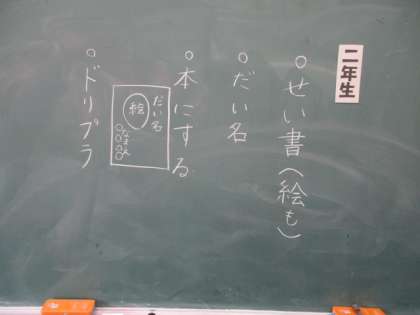 二年生
○せい書(絵も)
○だい名
○本にする
だい名
絵
○○○○
○ドリプラ